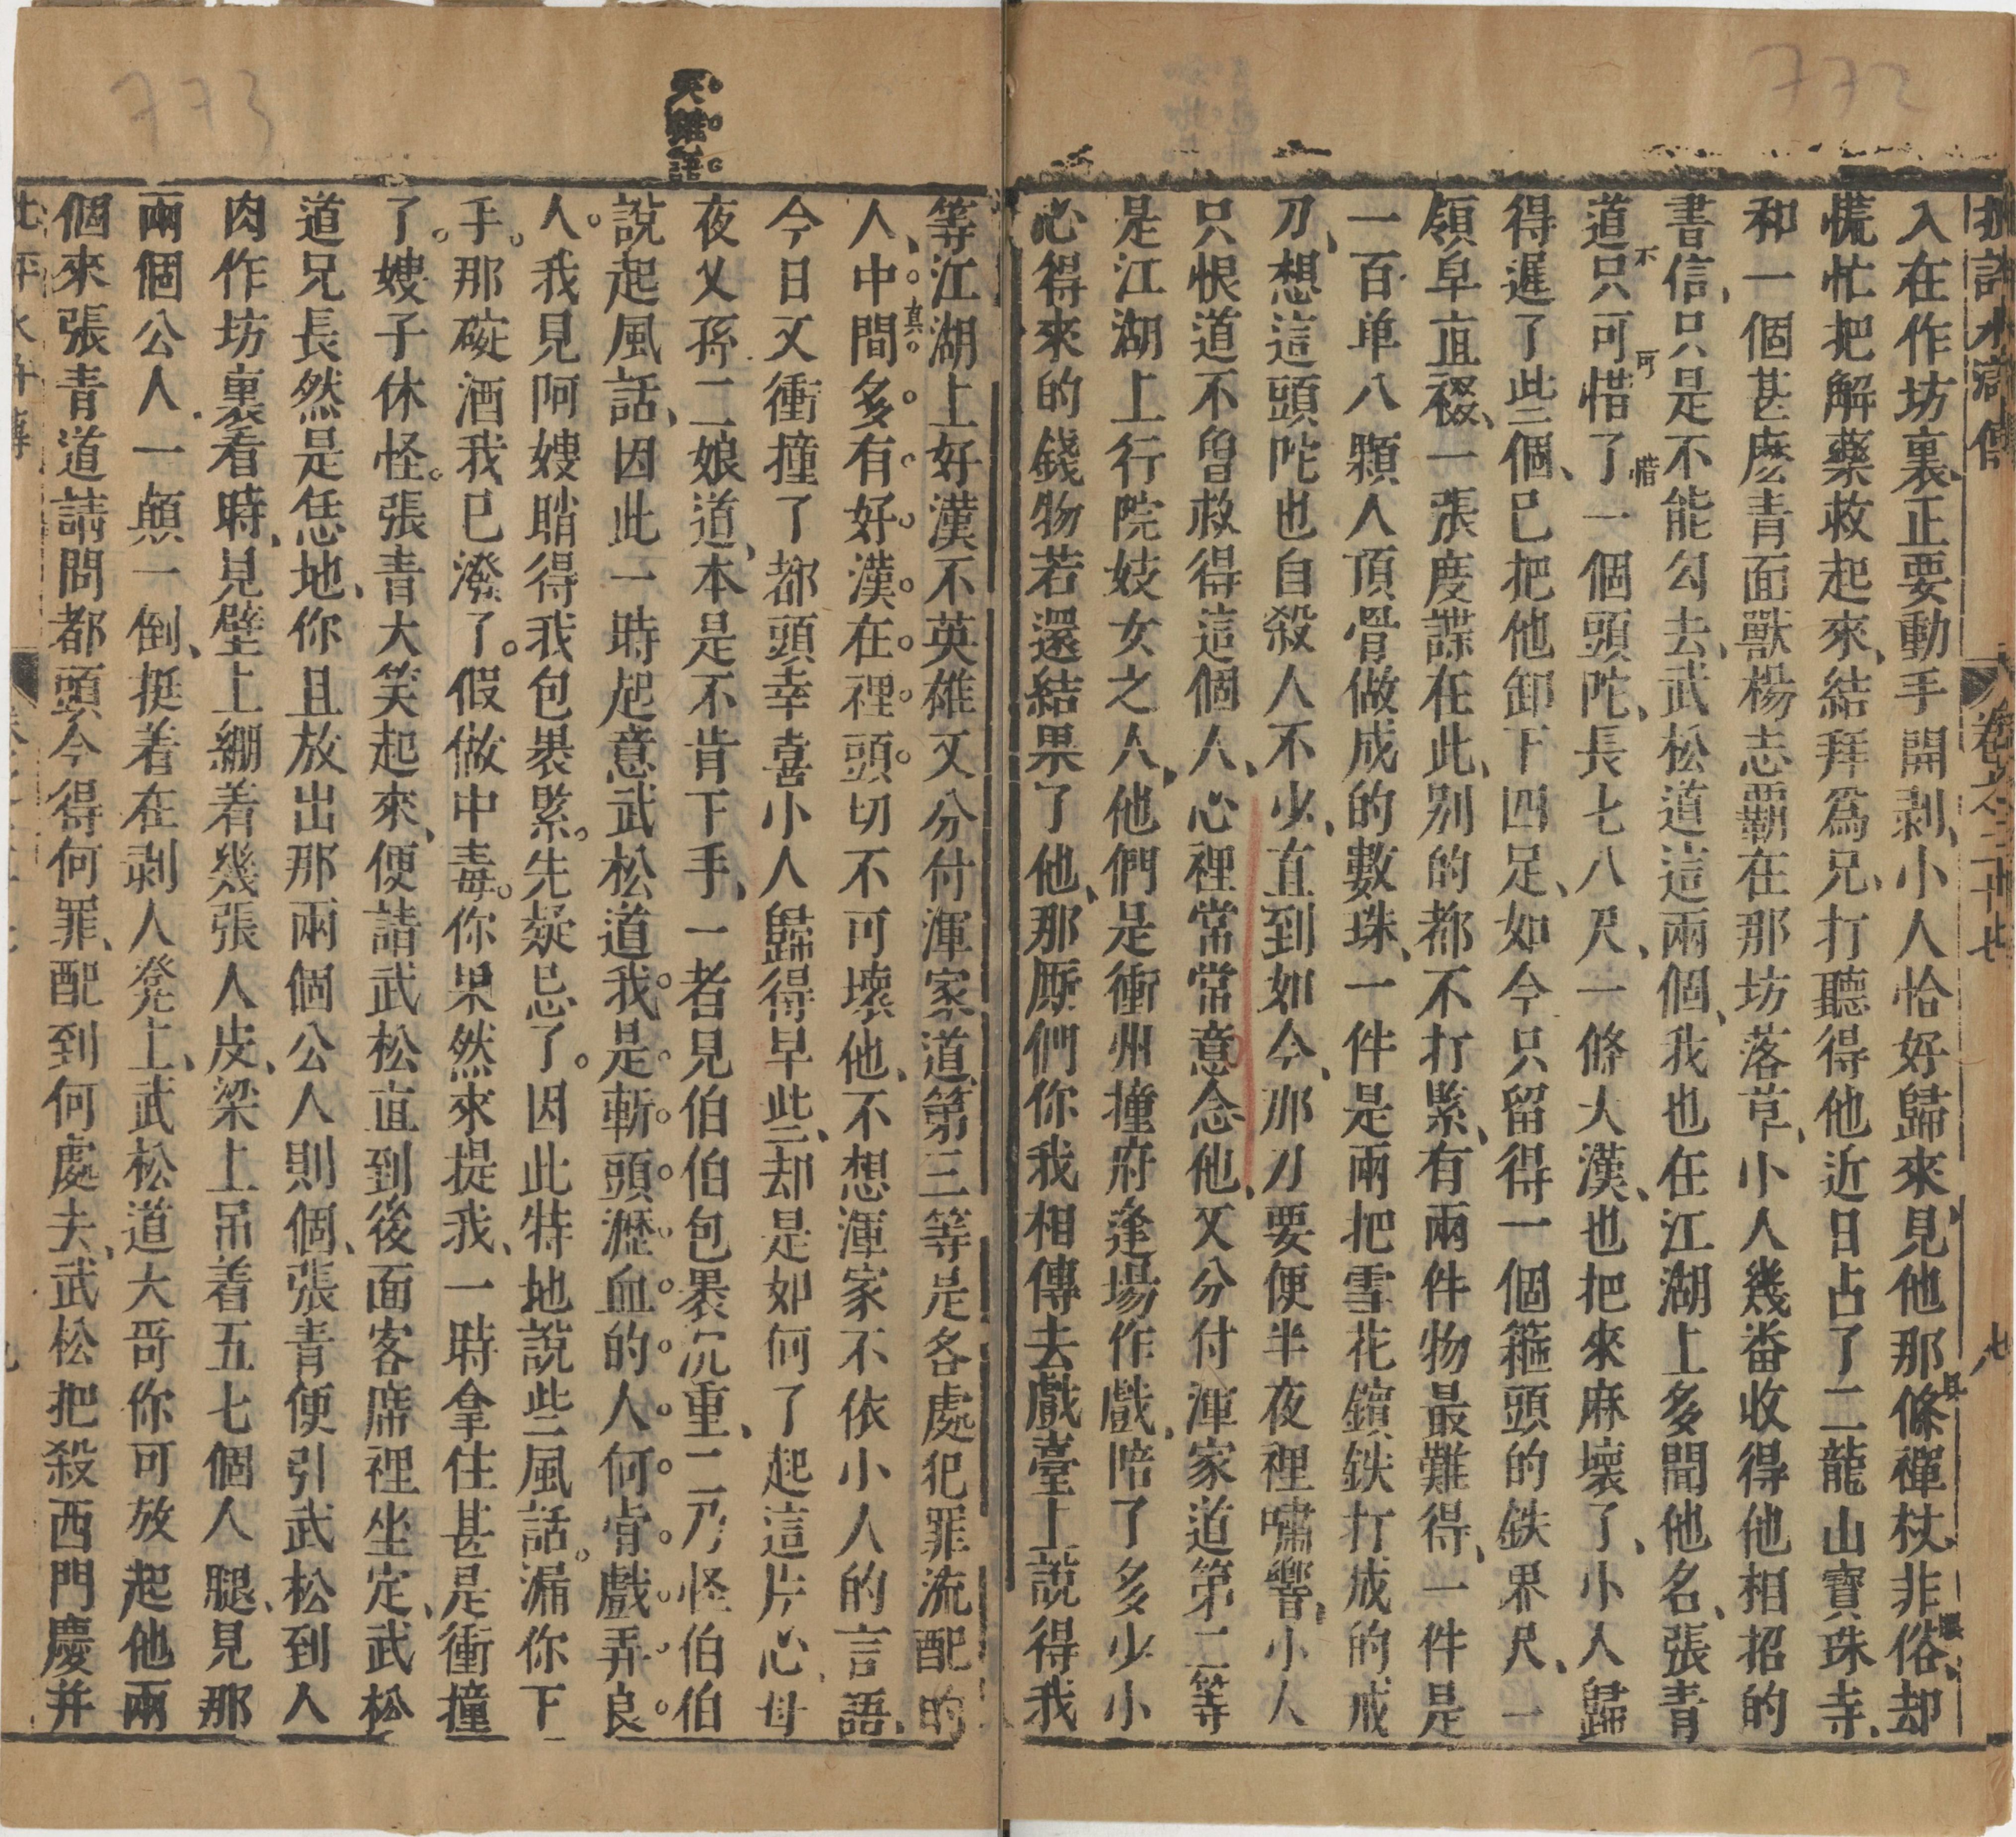 批評水滸傳
卷之二十七
入在作坊裏、正要動手開剥、小人恰好歸來、見他那條禪杖非俗、却
慌忙把解藥救起來、結拜爲兄、打聽得他近日占了二龍山寶珠寺、
和一個甚麽青面獸楊志霸在那坊落草、小人幾畨收得他相招的
書信、只是不能勾去、武松道這兩個、我也在江湖上多聞他名、張青
道只可惜了一個頭陀、長七八尺、一條大漢、也把來麻壞了、小人歸
不可惜
得遲了些個、已把他卸下四足、如今只留得一個箍頭的鉄界尺、一
領皁直裰、一張度諜在此、别的都不打緊、有兩件物最難得、一件是
一百单八顆人頂骨做成的數珠、一件是兩把雪花鑌鉄打成的戒
刀、想這頭陀也自殺人不少、直到如今、那刀要便半夜裡嘯響、小人
只恨道不曾救得這個人、心裡常常意念他、又分付渾家道第二等
是江湖上行院妓女之人、他們是衝州撞府逢場作戲、陪了多少小
心得來的錢物若還結果了他、那厮們你我相傳去戲臺上說得我
等江湖上好漢不英雄又分付渾家道、第三等是各處犯罪流配的
人、中間多有好漢在裡頭切不可壞他、不想渾家不依小人的言語、
真
今日又衝撞了都頭幸喜小人歸得早些、却是如何了起這片心母
夜叉孫二娘道、本是不肯下手、一者見伯伯包裹沉重、二乃怪伯伯
說起風話、因此一時起意武松道我是斬頭瀝血的人何肯戲弄良
人。我見阿嫂瞧得我包裹緊。先疑忌了。因此特地說些風話。漏你下
手。那碗酒我已潑了。假做中毒。你果然來提我、一時拿住甚是衝撞
了。嫂子休怪。張青大笑起來、便請武松直到後面客席裡坐定、武松
道兄長然是恁地、你且放出那兩個公人則個、張青便引武松到人
肉作坊裏看時、見壁上綳着幾張人皮、梁上吊着五七個人腿、見那
兩個公人、一顛一倒、挺着在剥人凳上、武松道大哥你可放起他兩
個來張青道請問都頭今得何罪、配到何處去、武松把殺西門慶并